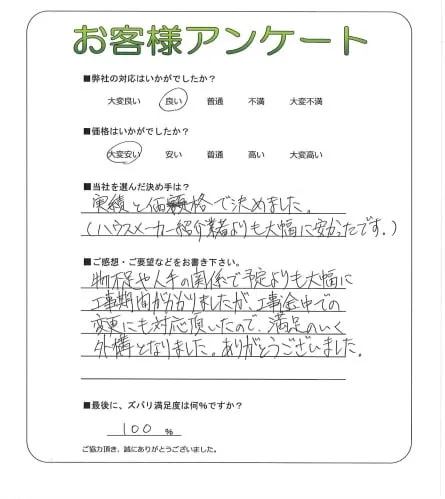 お客様アンケート
■弊社の対応はいかがでしたか？
大変良い 良い 普通 不満 大変不満
■価格はいかがでしたか？
大変安い 安い 普通 高い 大変高い
■当社を選んだ決め手は？
実績と価格で決めました。
(ハウスメーカー紹介業者よりも大幅に安かったです。)
■ご感想・ご要望などをお書き下さい。
物不足や人手の関係で予定よりも大幅に
工事期間がかかりましたが、工事途中での
変更にも対応頂いたので、満足のいく
外構となりました。ありがとうございました。
■最後に、ズバリ満足度は何%ですか？
100 %
ご協力頂き、誠にありがとうございました。